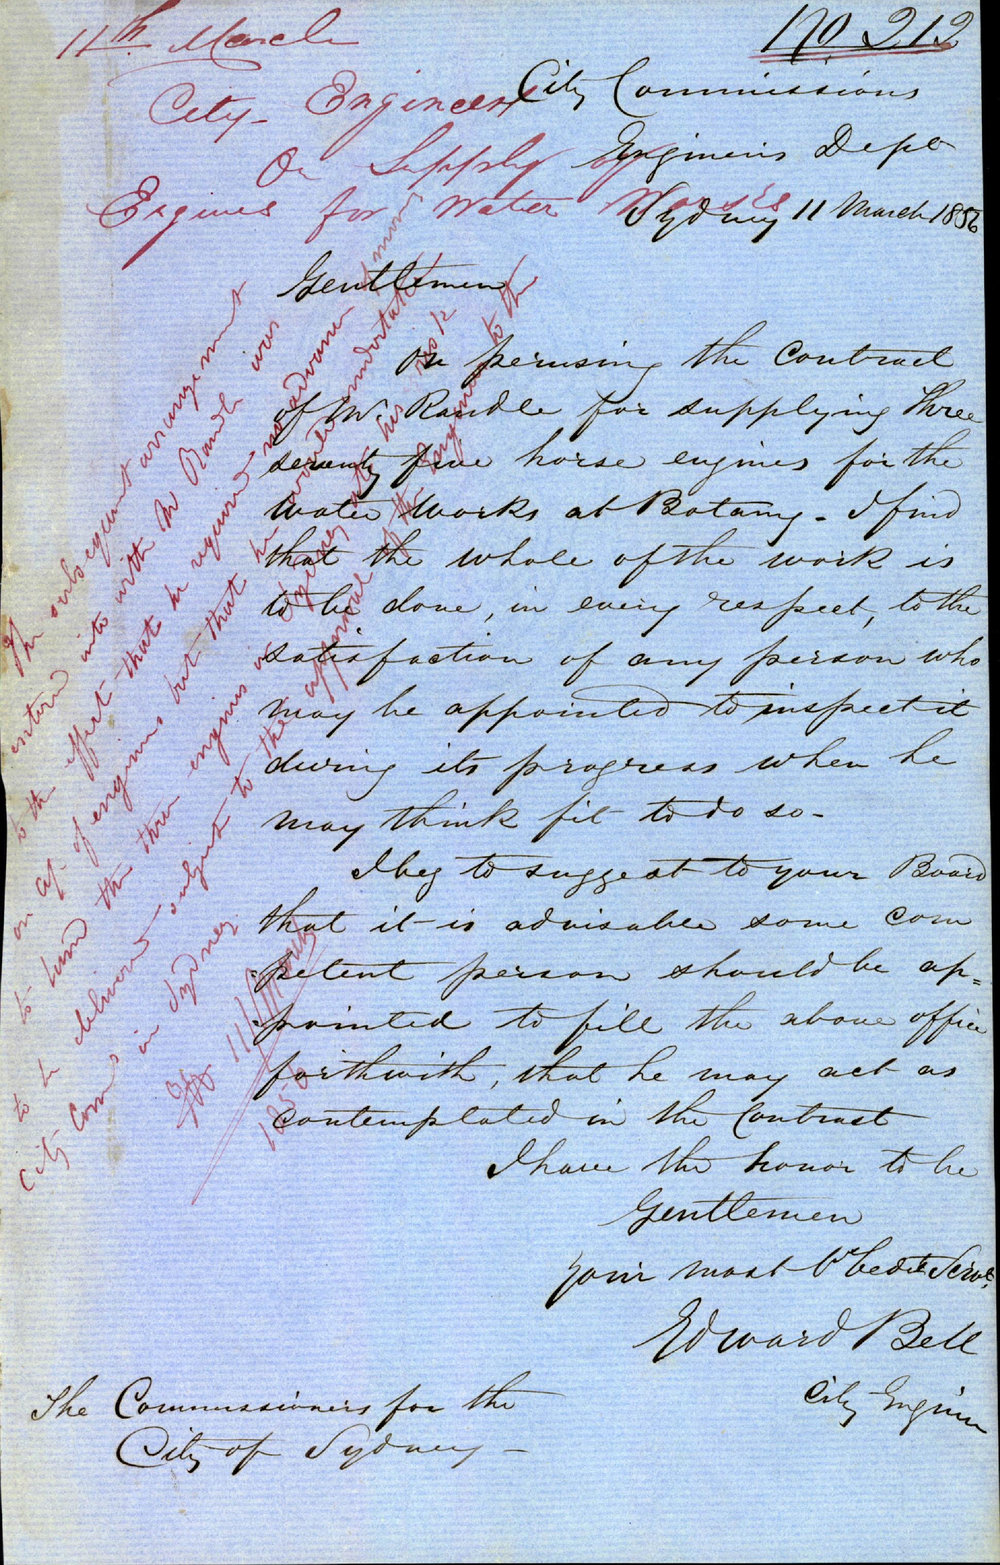 11th March
No 212
City Engineer
On Supply of
Engines for Water Works
City Commissions
Engineers Dept
Sydney 11 March 1856
Gentlemen
On perusing the Contract
of Mr Randle for supplying Three
seventy five horse engines for the
Water Works at Botany - I find
that the whole of the work is
to be done, in every respect, to the
satisfaction of any person who
may be appointed to inspect it
during its progress when he
may think fit to do so -
I beg to suggest to your Board
that it is advisable some com
"petent person should be ap=
"pointed to fill the above office
forthwith, that he may act as
contemplated in the Contract
I have the honor to be
Gentlemen
Your most Obedt Servt
Edward Bell
City Engineer
The Commissioners for the
City of Sydney -
The subsequent arrangement
entered into with Mr Randle was
to the effect that he required no advance of money
on a/c of engines but that he would undertake
to land the three engines in Sydney at his own risk
to be delivered subject to the approval of the Engineer to the
City Comrs in Sydney
11/March
1856